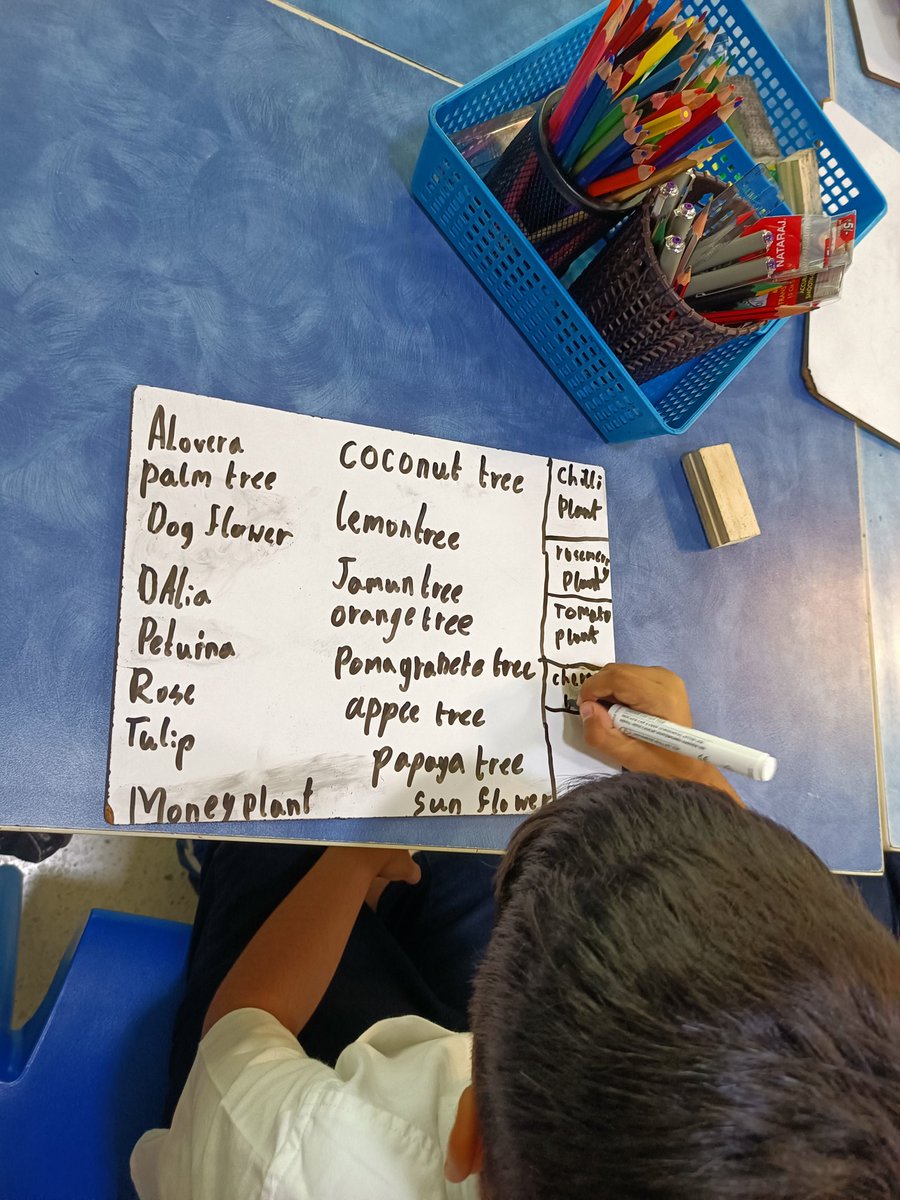 Alovera
palm tree
Dog flower
DAlia
Petuina
Rose
Tulip
Moneyplant
coconut tree
lemontree
Jamuntree
orangetree
Pomagranete tree
apple tree
Papaya tree
sun flower
chilli
plant
rosemery
plant
Tomato
plant
NATARAJ
5/-